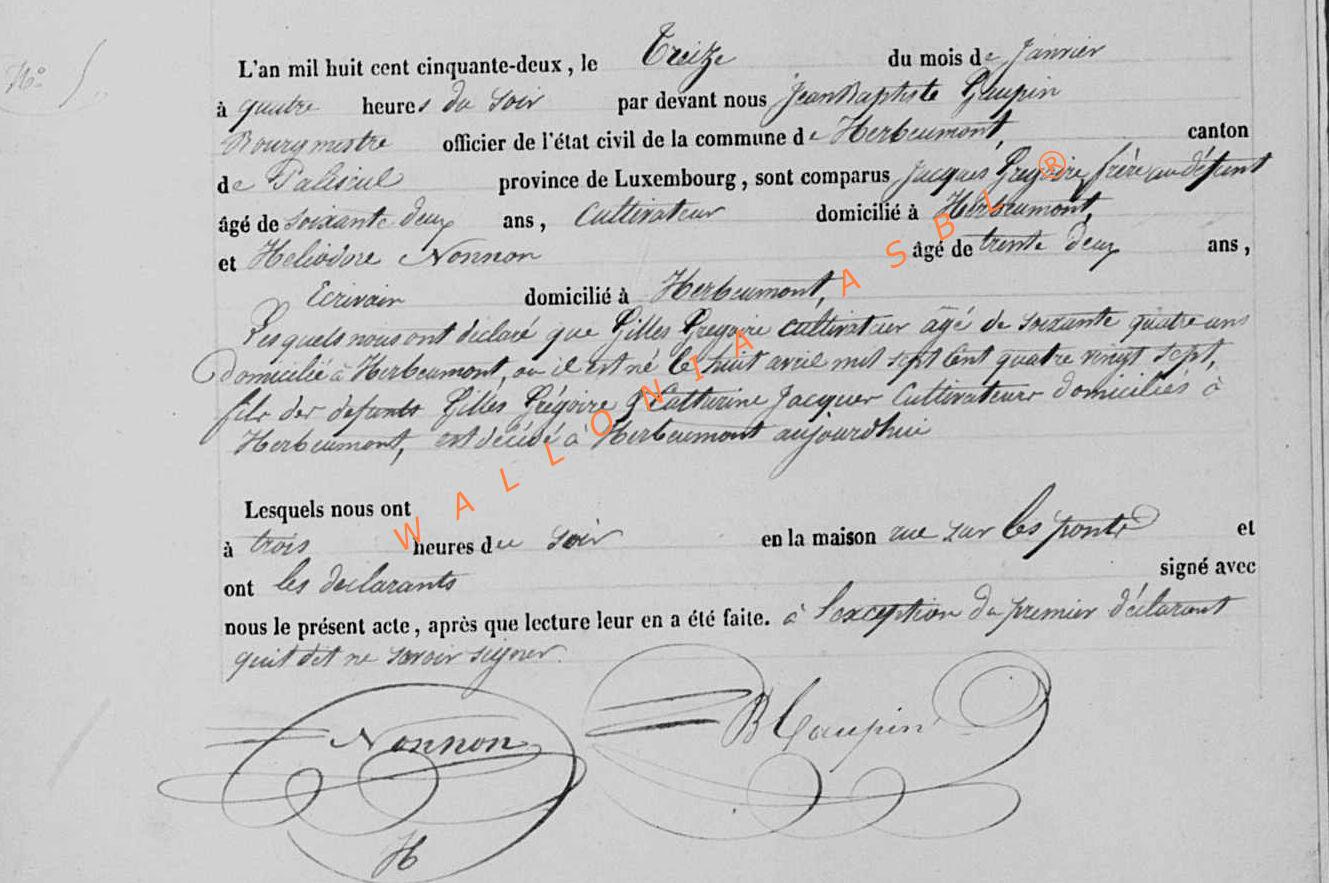 N° 5
L'an mil huit cent cinquante-deux, le Treize du mois de Janvier
à quatre heures du soir par devant nous Jean Baptiste Gaupin
Bourgmestre officier de l'état civil de la commune de Herbeumont, canton
de Paliseul province de Luxembourg, sont comparus Jacques Grégoire frère au défunt
âgé de soixante deux ans, Cultivateur domicilié à Herbeumont,
et Heliodore Nonnon âgé de trente deux ans,
Ecrivain domicilié à Herbeumont,
Lesquels nous ont déclaré que Gilles Gregoire cultivateur âgé de soixante quatre ans
domicilié à Herbeumont, ou il est né le huit avril mil sept cent quatre vingt sept,
fils des defunts Gilles Grégoire & Catherine Jacques Cultivateurs domiciliés à
Herbeumont, est décédé à Herbeumont aujourdhui
Lesquels nous ont
à trois heures du soir en la maison rue sur les ponts et
ont les declarants signé avec
nous le présent acte, après que lecture leur en a été faite. à l'exception du premier déclarant
qui dit ne savoir signer.
Nonnon B Gaupin
H
WALLONIA ASBL ®